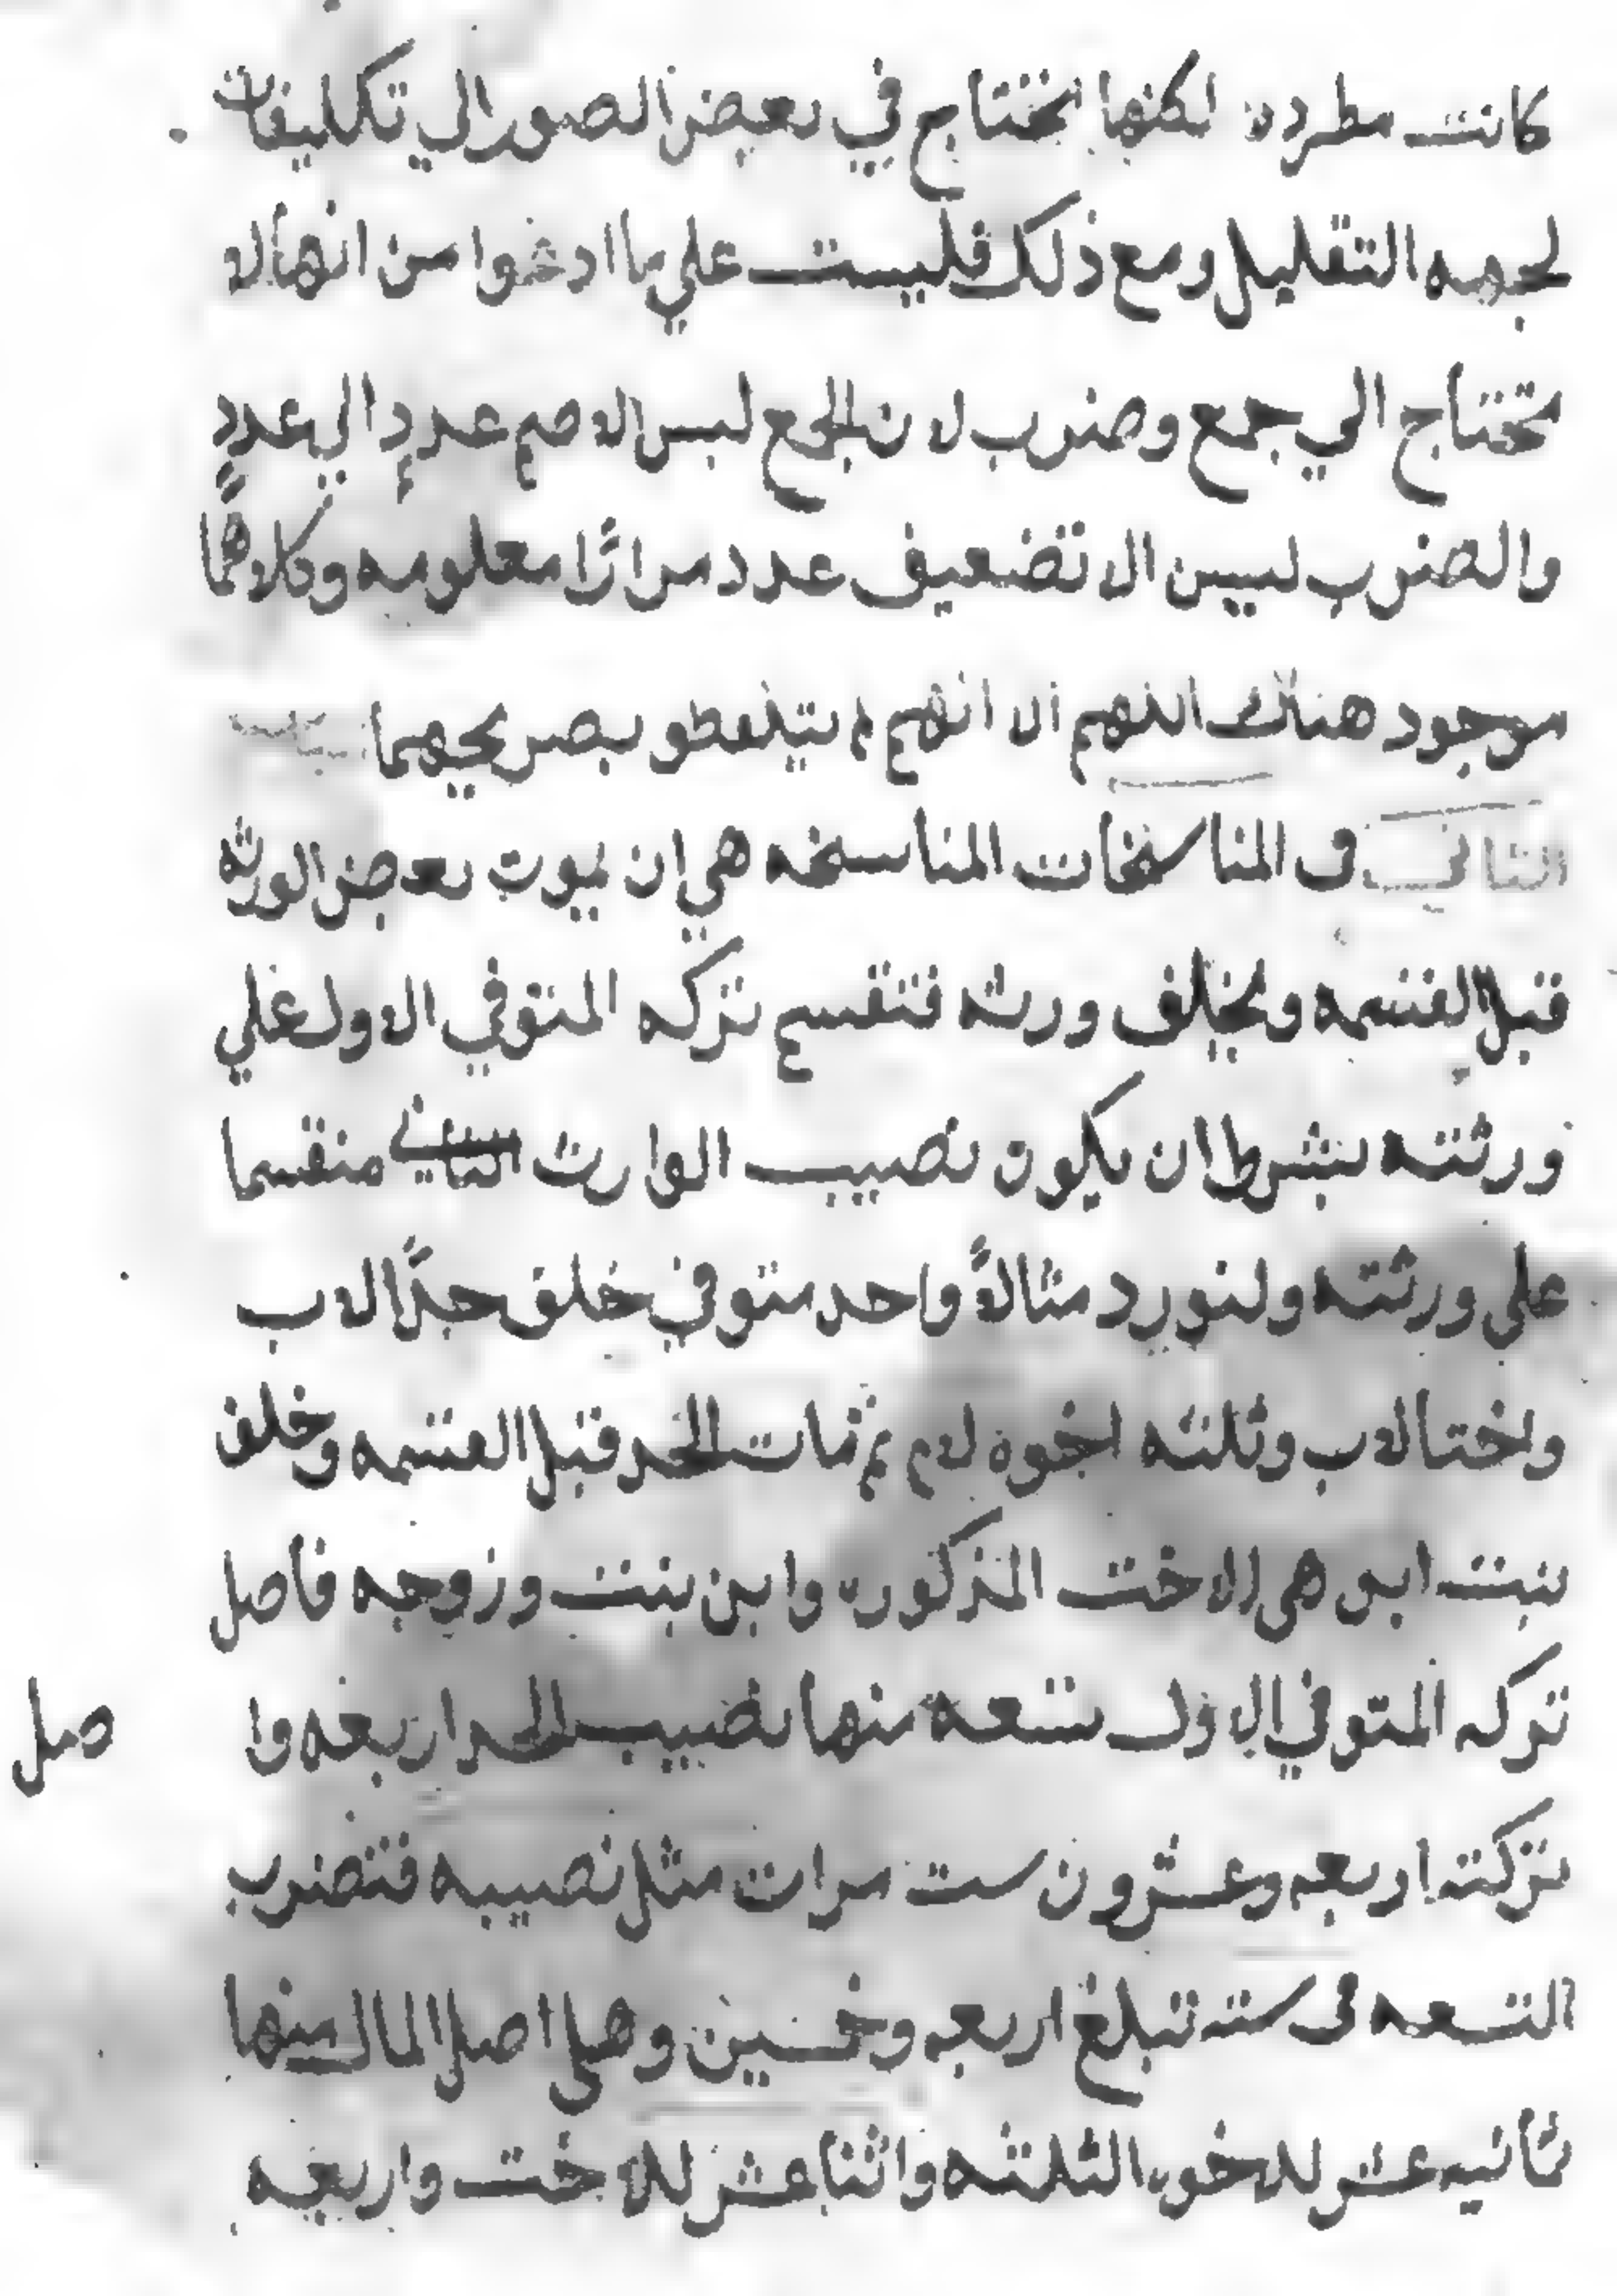 كانت مطرده لكنها تحتاج في بعض الصور الي تكليفات
لجهه التقليل ومع ذلك فليست علي ما ادعوا من انها لا
تحتاج الي جمع وضرب لان الجمع ليس الا ضم عددٍ الي عددٍ
والضرب ليس الا تضعيف عدد مرارًا معلومه وكلاهما
موجود هنالك اللهم الا انهم لم يتلفطو بصريحهما
الثاني في المناسخات المناسخه هي ان يموت بعض الورثه
قبل القسمه ويخلف ورثه فتقسم تركه المتوفي الاول علي
ورثته بشرط ان يكون نصيب الوارث الثاني منقسما
علي ورثته ولنورد مثالاً واحد متوفي خلف جدًا لاب
واختا لاب وثلثه اخوه لام ثم مات الجد قبل القسمه وخلف
بنت ابن هي الاخت المذكوره وابن بنت وزوجه فاصل
تركه المتوفي الاول تسعه منها نصيب الجد اربعه وا صل
تركته اربعه وعشرون ست مرات مثل نصيبه فتضرب
التسعه في سته تبلغ اربعه وخمسين وهي اصل المال منها
ثمانيه عشر للاخوه الثلثه واثنا عشر للاخت واربعه